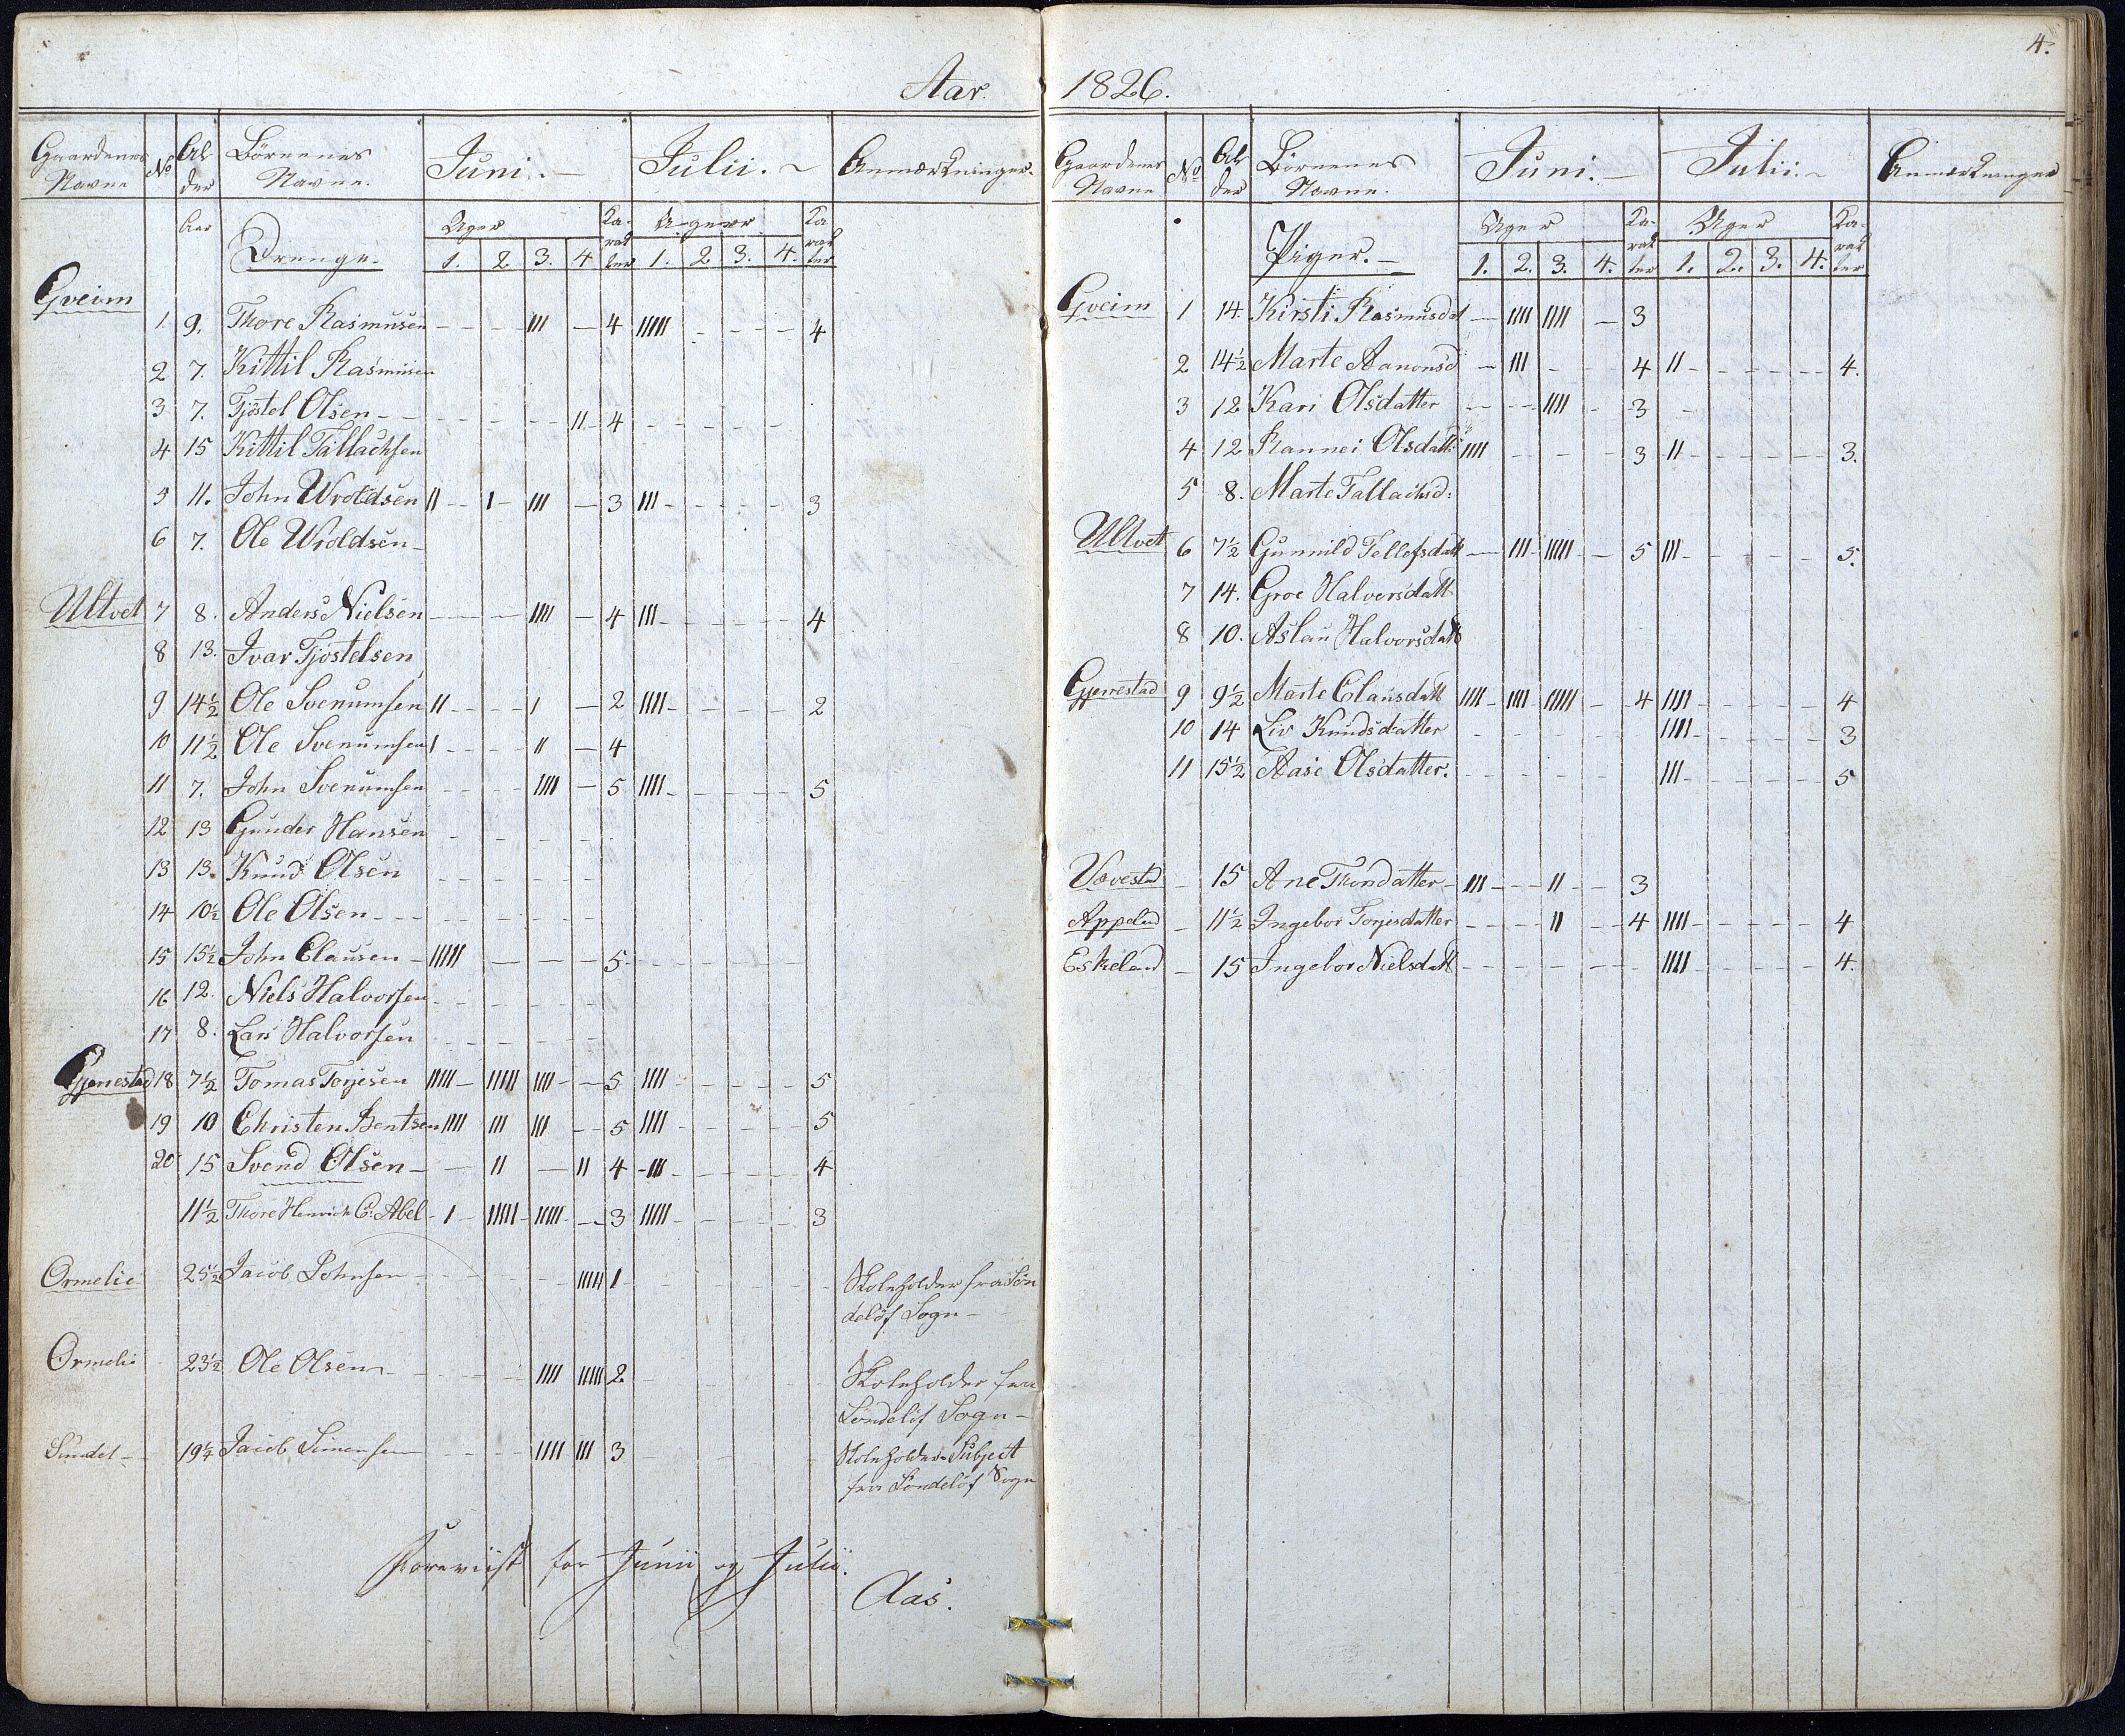 4.
Aar. 1826.
Gaardenes Navne | No | Alder | Børnenes Navne. | Juni. | Julii. | Anmærkninger.
Aar | Drenge. | Uger | Karakter | Uger | Karakter
1. 2 3. 4 | 1. 2 3. 4.
Gveim
1. 9. Thore Rasmusen - - - - III - 4 IIIII - - - - 4
2 7. Kittil Rasmusen
3 7. Tjøstel Olsen - - - - - - II - 4 - - - - -
4 15 Kittil Tallachsen
5 11. John Wroldsen II - - I - III - 3 III - - - - - 3
6 7. Ole Wroldsen -
Ultvet 7 8. Anders Nielsen - - - IIII - 4 III - - - - - 4
8 13. Ivar Tjøstelsen
9 14½ Ole Svenumsen II - - - - I - 2 IIII - - - - - 2
10 11½ Ole Svenumsen I - - - - II - 4
11 7. John Svenumsen - - - - IIII - 5 IIII - - - - - 5
12 13 Gunder Hansen - - - - -
13 13. Knud Olsen - - - - -
14 10½ Ole Olsen - - - - - - - -
15 15½ John Clausen - IIIII - - - - 5 - - - - -
16 12. Niels Halvorsen - - - - -
17 8. Lars Halvorsen - - - - -
Gjerrestad 18 7½ Tomas Torjesen IIIII - IIIII IIII - - 5 IIII - - - - - 5
19 10 Christen Bentsen IIII III III - - 5 IIII - - - - - 5
20 15 Svend Olsen - - II - II 4 - III - - - - - 4
11½ Thore Henrich C: Abel - I - IIIII - IIIII - - 3 IIIII - - - - - 3
Ormelie 25½ Jacob Johnsen - - - - - IIIII 1 - - - - - Skoleholder fra Søn
deløf Sogn -
Ormelie 23½ Ole Olsen - - - - - IIII IIIII 2 - - - - Skoleholder fra
Søndeløf Sogn -
Sundet - 19¼ Jacob Simensen - - - - IIII III 3 - - - - Skoleholder-Subject
fra Søndeløf Sogn
Foreviist for Junii og Julii.
Aas.
Gaardenes Navne | No | Alder | Børnenes Navne. | Juni. - | Julii. - | Anmærkninger
Piger. - | Uger | Karakter | Uger | Karakter
1. 2. 3. 4. | 1. 2. 3. 4.
Gveim 1 14. Kirsti Rasmusdat - IIII IIII - 3
2 14½ Marte Aanonsd - III - - 4 II - - - - - - 4.
3 12 Kari Olsdatter - - - IIII - 3 -
4 12 Rannei Olsdatt: IIII - - - - 3 II - - - - - - 3.
5 8. Marte Tallachsd:
Ultvet 6 7½ Gunnild Tellefsdatt - III - IIIII - - 5 III - - - - - 5.
7 14. Groe Halvorsdatt
8 10. Aslau Halvorsdatt
Gjerrestad 9 9½ Marte Clausdatt IIII - IIII - IIIII - 4 IIII - - - - - 4
10 14 Liv Knudsdatter - - - - - IIIII - - - - - 3
11 15½ Aase Olsdatter. - - - - - III - - - - - 5
Vævestad - 15 Ane Thordatter - III - - - II - - 3
Appelad - 11½ Ingebor Torjesdatter - - - - II - - 4 IIII - - - - - 4
Eskeland - 15 Ingebor Nielsdatt - - - - - - - IIIII - - - - 4.